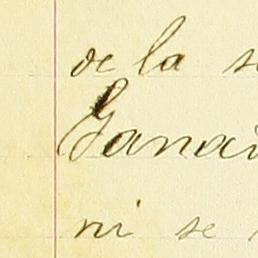 de la s
Ganad
ni se